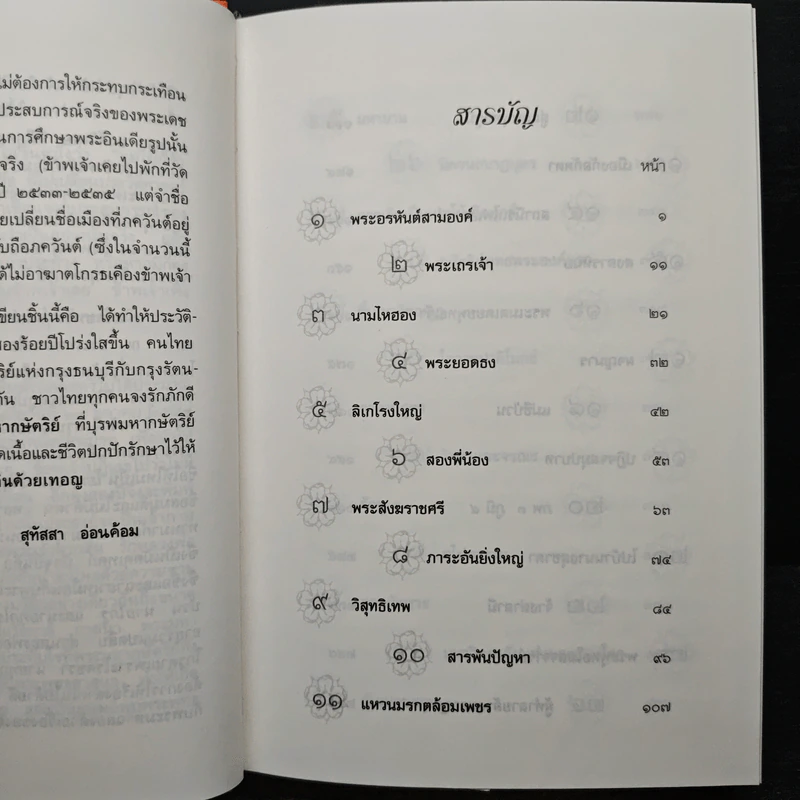 ไม่ต้องการให้กระทบกระเทือน
ประสบการณ์จริงของพระเดช
นการศึกษาพระอินเดียรูปนั้น
จริง (ข้าพเจ้าเคยไปพักที่วัด
ปี ๒๕๓๓-๒๕๓๕ แต่จำชื่อ
ยเปลี่ยนชื่อเมืองที่ภควันต์อยู่
ับถือภควันต์ (ซึ่งในจำนวนนี้
ด้ไม่อาฆาตโกรธเคืองข้าพเจ้า
ขียนชิ้นนี้คือ ได้ทำให้ประวัติ-
ของร้อยปีโปร่งใสขึ้น คนไทย
ริย์แห่งกรุงธนบุรีกับกรุงรัตน-
กัน ชาวไทยทุกคนจงรักภักดี
หากษัตริย์ ที่บุรพมหากษัตริย์
ดเนื้อและชีวิตปกปักรักษาไว้ให้
นด้วยเทอญ
สุทัสสา อ่อนค้อม
สารบัญ
หน้า
๑ พระอรหันต์สามองค์ ๑
๒ พระเถรเจ้า ๑๑
๓ นามไหฮอง ๒๑
๔ พระยอดธง ๓๒
๕ ลิเกโรงใหญ่ ๔๒
๖ สองพี่น้อง ๕๓
๗ พระสังฆราชศรี ๖๓
๘ ภาระอันยิ่งใหญ่ ๗๔
๙ วิสุทธิเทพ ๘๕
๑๐ สารพันปัญหา ๙๖
๑๑ แหวนมรกตล้อมเพชร ๑๐๗